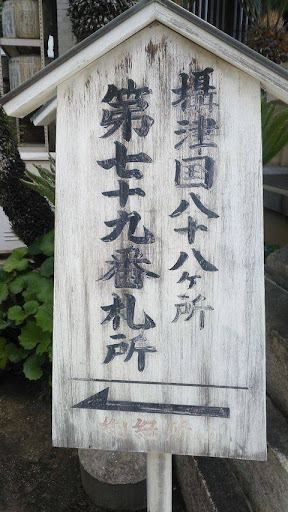 摂津国八十八ヶ所
第七十九番札所